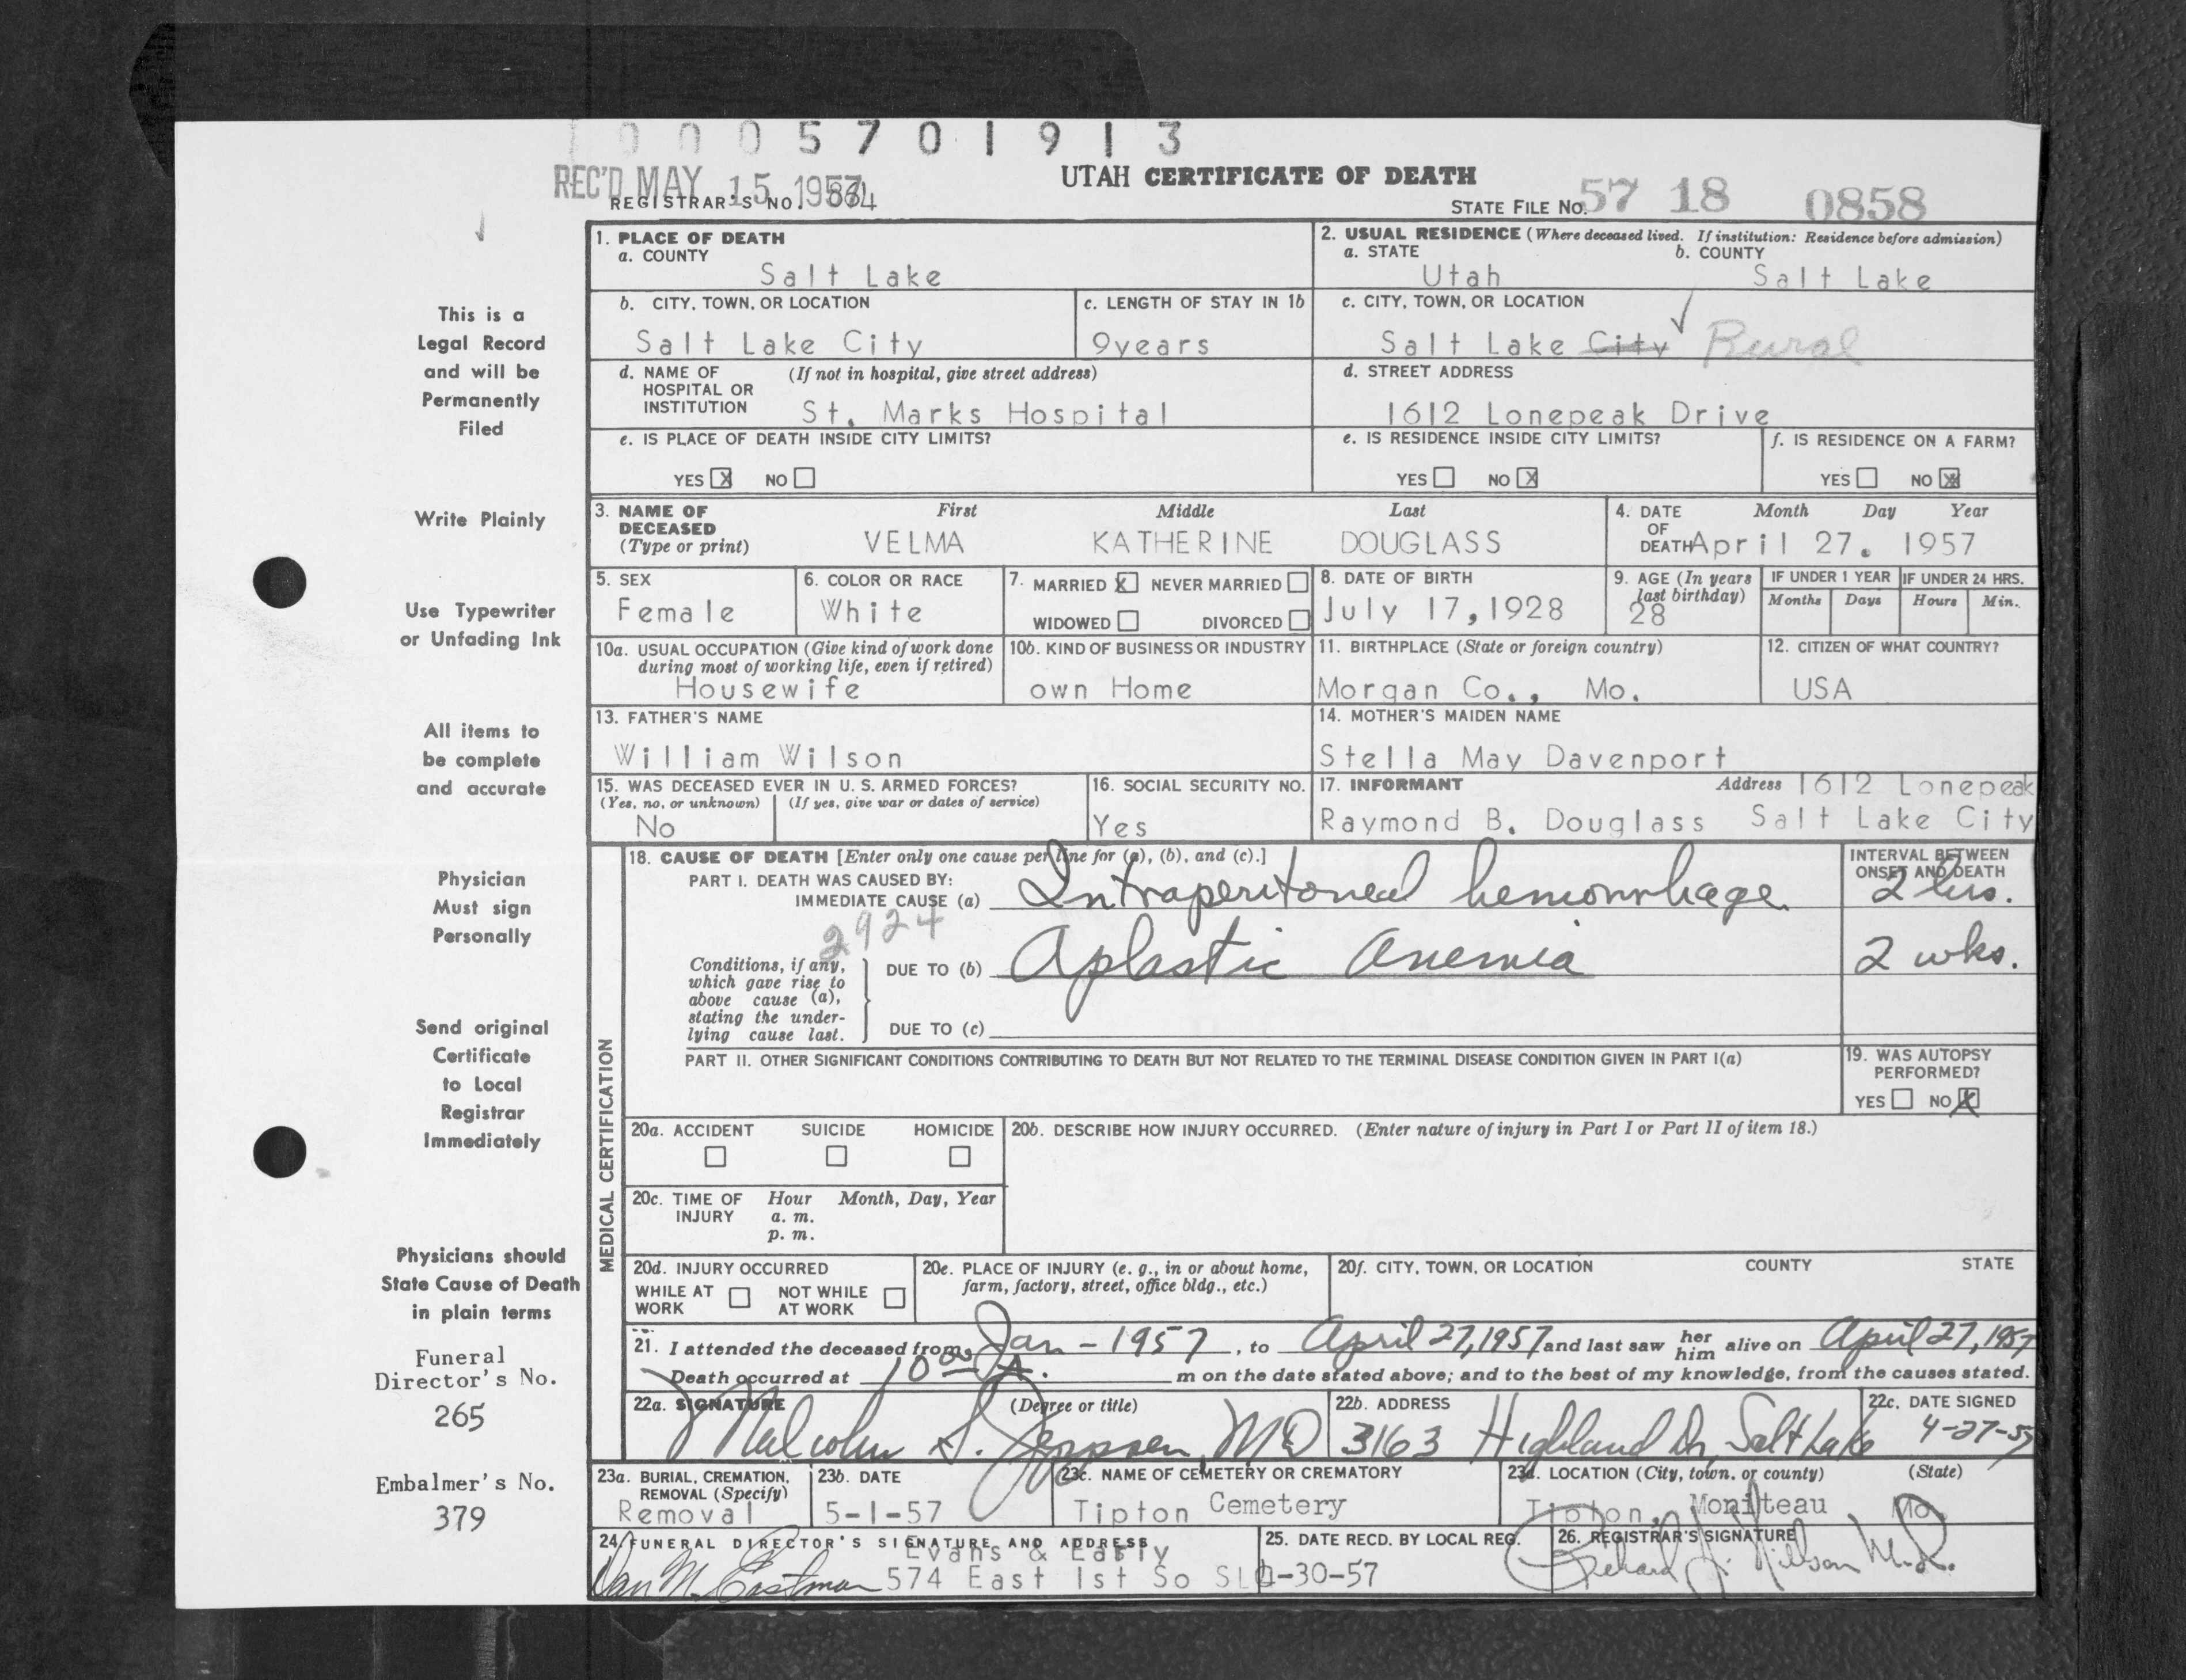 0 0 0 5 7 0 1 9 1 3
REC'D MAY 15 1957
REGISTRAR'S NO.
UTAH CERTIFICATE OF DEATH
STATE FILE NO. 57 18 0858
This is a
Legal Record
and will be
Permanently
Filed
Write Plainly
Use Typewriter
or Unfading Ink
All items to
be complete
and accurate
Physician
Must sign
Personally
Send original
Certificate
to Local
Registrar
Immediately
Physicians should
State Cause of Death
in plain terms
Funeral
Director's No.
265
Embalmer's No.
379
1. PLACE OF DEATH
a. COUNTY
Salt Lake
2. USUAL RESIDENCE (Where deceased lived. If institution: Residence before admission)
a. STATE b. COUNTY
Utah Salt Lake
b. CITY, TOWN, OR LOCATION
Salt Lake City
c. LENGTH OF STAY IN 1b
9years
c. CITY, TOWN, OR LOCATION
Salt Lake City Rural
d. NAME OF (If not in hospital, give street address)
HOSPITAL OR
INSTITUTION St. Marks Hospital
d. STREET ADDRESS
1612 Lonepeak Drive
e. IS PLACE OF DEATH INSIDE CITY LIMITS?
YES X NO
e. IS RESIDENCE INSIDE CITY LIMITS?
YES NO X
f. IS RESIDENCE ON A FARM?
YES NO X
3. NAME OF First Middle Last
DECEASED
(Type or print) VELMA KATHERINE DOUGLASS
4. DATE Month Day Year
OF
DEATH April 27. 1957
5. SEX
Female
6. COLOR OR RACE
White
7. MARRIED X NEVER MARRIED
WIDOWED DIVORCED
8. DATE OF BIRTH
July 17, 1928
9. AGE (In years
last birthday)
28
IF UNDER 1 YEAR IF UNDER 24 HRS.
Months Days Hours Min.
10a. USUAL OCCUPATION (Give kind of work done
during most of working life, even if retired)
Housewife
10b. KIND OF BUSINESS OR INDUSTRY
own Home
11. BIRTHPLACE (State or foreign country)
Morgan Co., Mo.
12. CITIZEN OF WHAT COUNTRY?
USA
13. FATHER'S NAME
William Wilson
14. MOTHER'S MAIDEN NAME
Stella May Davenport
15. WAS DECEASED EVER IN U. S. ARMED FORCES?
(Yes, no, or unknown) (If yes, give war or dates of service)
No
16. SOCIAL SECURITY NO.
Yes
17. INFORMANT Address 1612 Lonepeak
Raymond B. Douglass Salt Lake City
MEDICAL CERTIFICATION
18. CAUSE OF DEATH [Enter only one cause per line for (a), (b), and (c).]
PART I. DEATH WAS CAUSED BY:
IMMEDIATE CAUSE (a) Intraperitoneal hemorrhage
INTERVAL BETWEEN
ONSET AND DEATH
2 hrs.
2924
Conditions, if any,
which gave rise to
above cause (a),
stating the under-
lying cause last.
DUE TO (b) Aplastic anemia 2 wks.
DUE TO (c)
PART II. OTHER SIGNIFICANT CONDITIONS CONTRIBUTING TO DEATH BUT NOT RELATED TO THE TERMINAL DISEASE CONDITION GIVEN IN PART I(a)
19. WAS AUTOPSY
PERFORMED?
YES NO X
20a. ACCIDENT SUICIDE HOMICIDE
20b. DESCRIBE HOW INJURY OCCURRED. (Enter nature of injury in Part I or Part II of item 18.)
20c. TIME OF Hour Month, Day, Year
INJURY a. m.
p. m.
20d. INJURY OCCURRED
WHILE AT NOT WHILE
WORK AT WORK
20e. PLACE OF INJURY (e. g., in or about home,
farm, factory, street, office bldg., etc.)
20f. CITY, TOWN, OR LOCATION COUNTY STATE
21. I attended the deceased from Jan - 1957, to April 27, 1957 and last saw her him alive on April 27, 1957
Death occurred at 10 00 A. m on the date stated above; and to the best of my knowledge, from the causes stated.
22a. SIGNATURE (Degree or title)
Malcolm S. Jeppsen MD
22b. ADDRESS
3163 Highland Dr, Salt Lake
22c. DATE SIGNED
4-27-57
23a. BURIAL, CREMATION,
REMOVAL (Specify)
Removal
23b. DATE
5-1-57
23c. NAME OF CEMETERY OR CREMATORY
Tipton Cemetery
23d. LOCATION (City, town, or county) (State)
Tipton, Moniteau Mo.
24. FUNERAL DIRECTOR'S SIGNATURE AND ADDRESS
Evans & Early
Dan M. Eastman 574 East 1st So SLC
25. DATE RECD. BY LOCAL REG.
4-30-57
26. REGISTRAR'S SIGNATURE
Richard J. Nilson M.D.